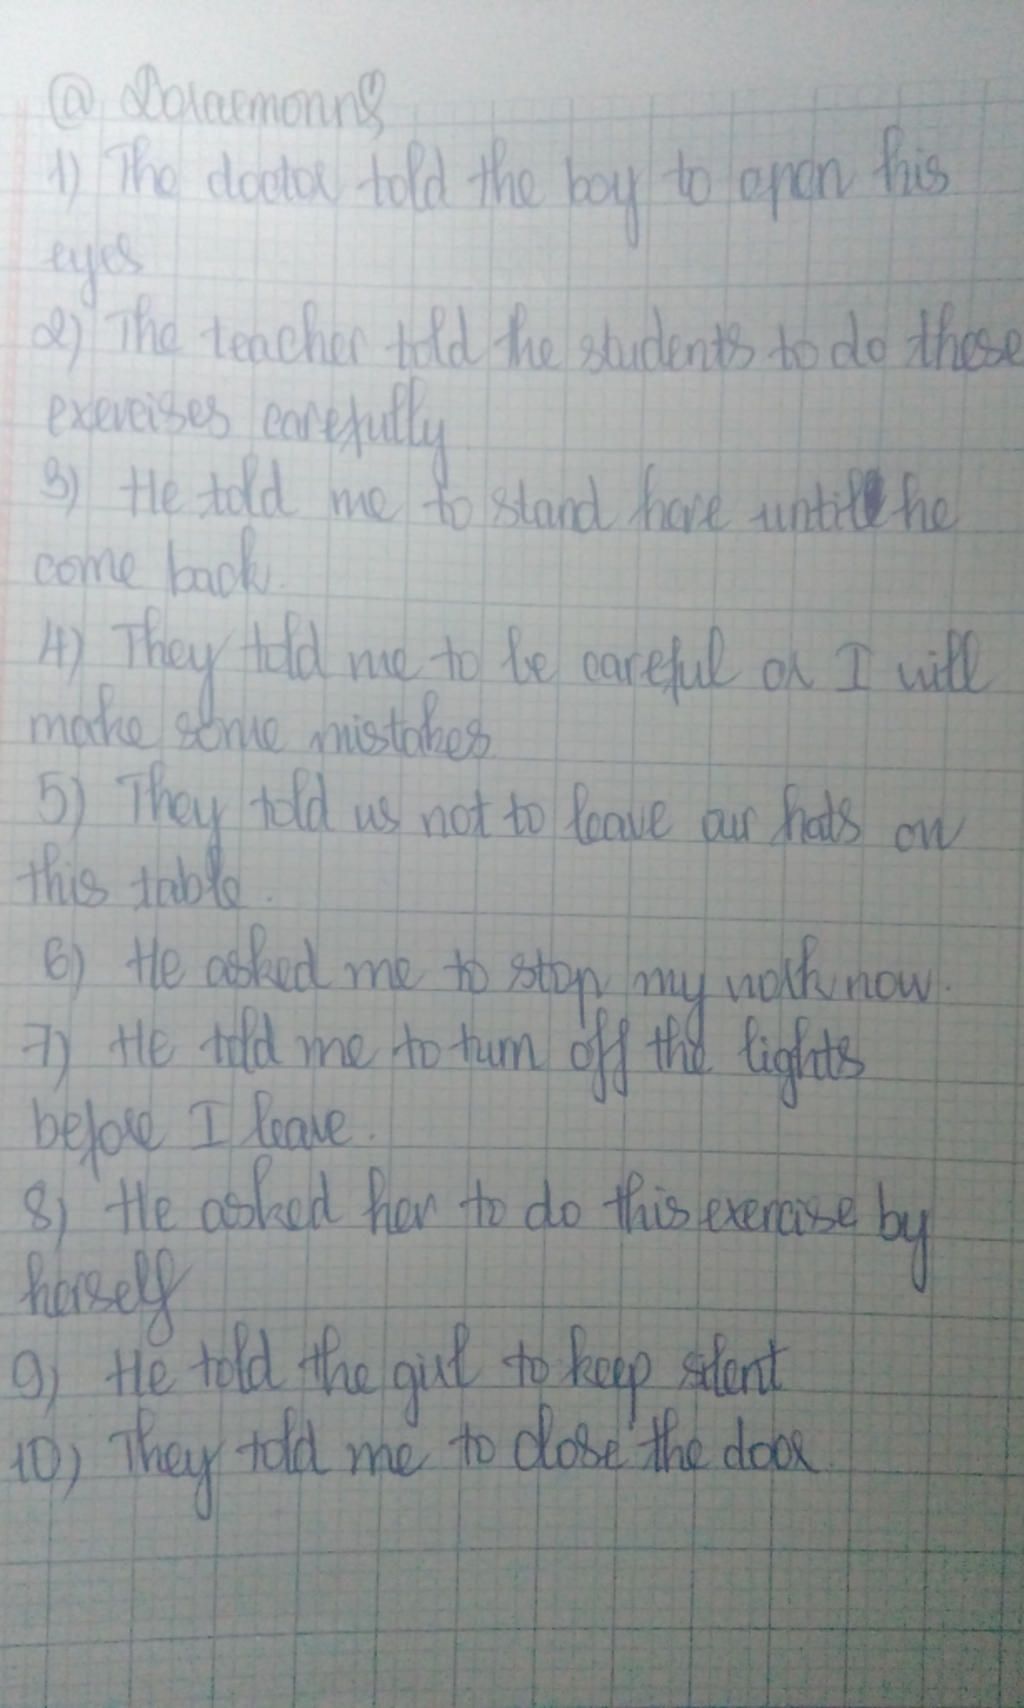 @ Doraemonn8
1) The doctor told the boy to open his
eyes
2) The teacher told the students to do these
exercises carefully
3) He told me to stand here until he
come back.
4) They told me to be careful or I will
make some mistakes
5) They told us not to leave our hats on
this table.
6) He asked me to stop my work now.
7) He told me to turn off the lights
before I leave.
8) He asked her to do this exercise by
herself
9) He told the girl to keep silent
10) They told me to close the door.